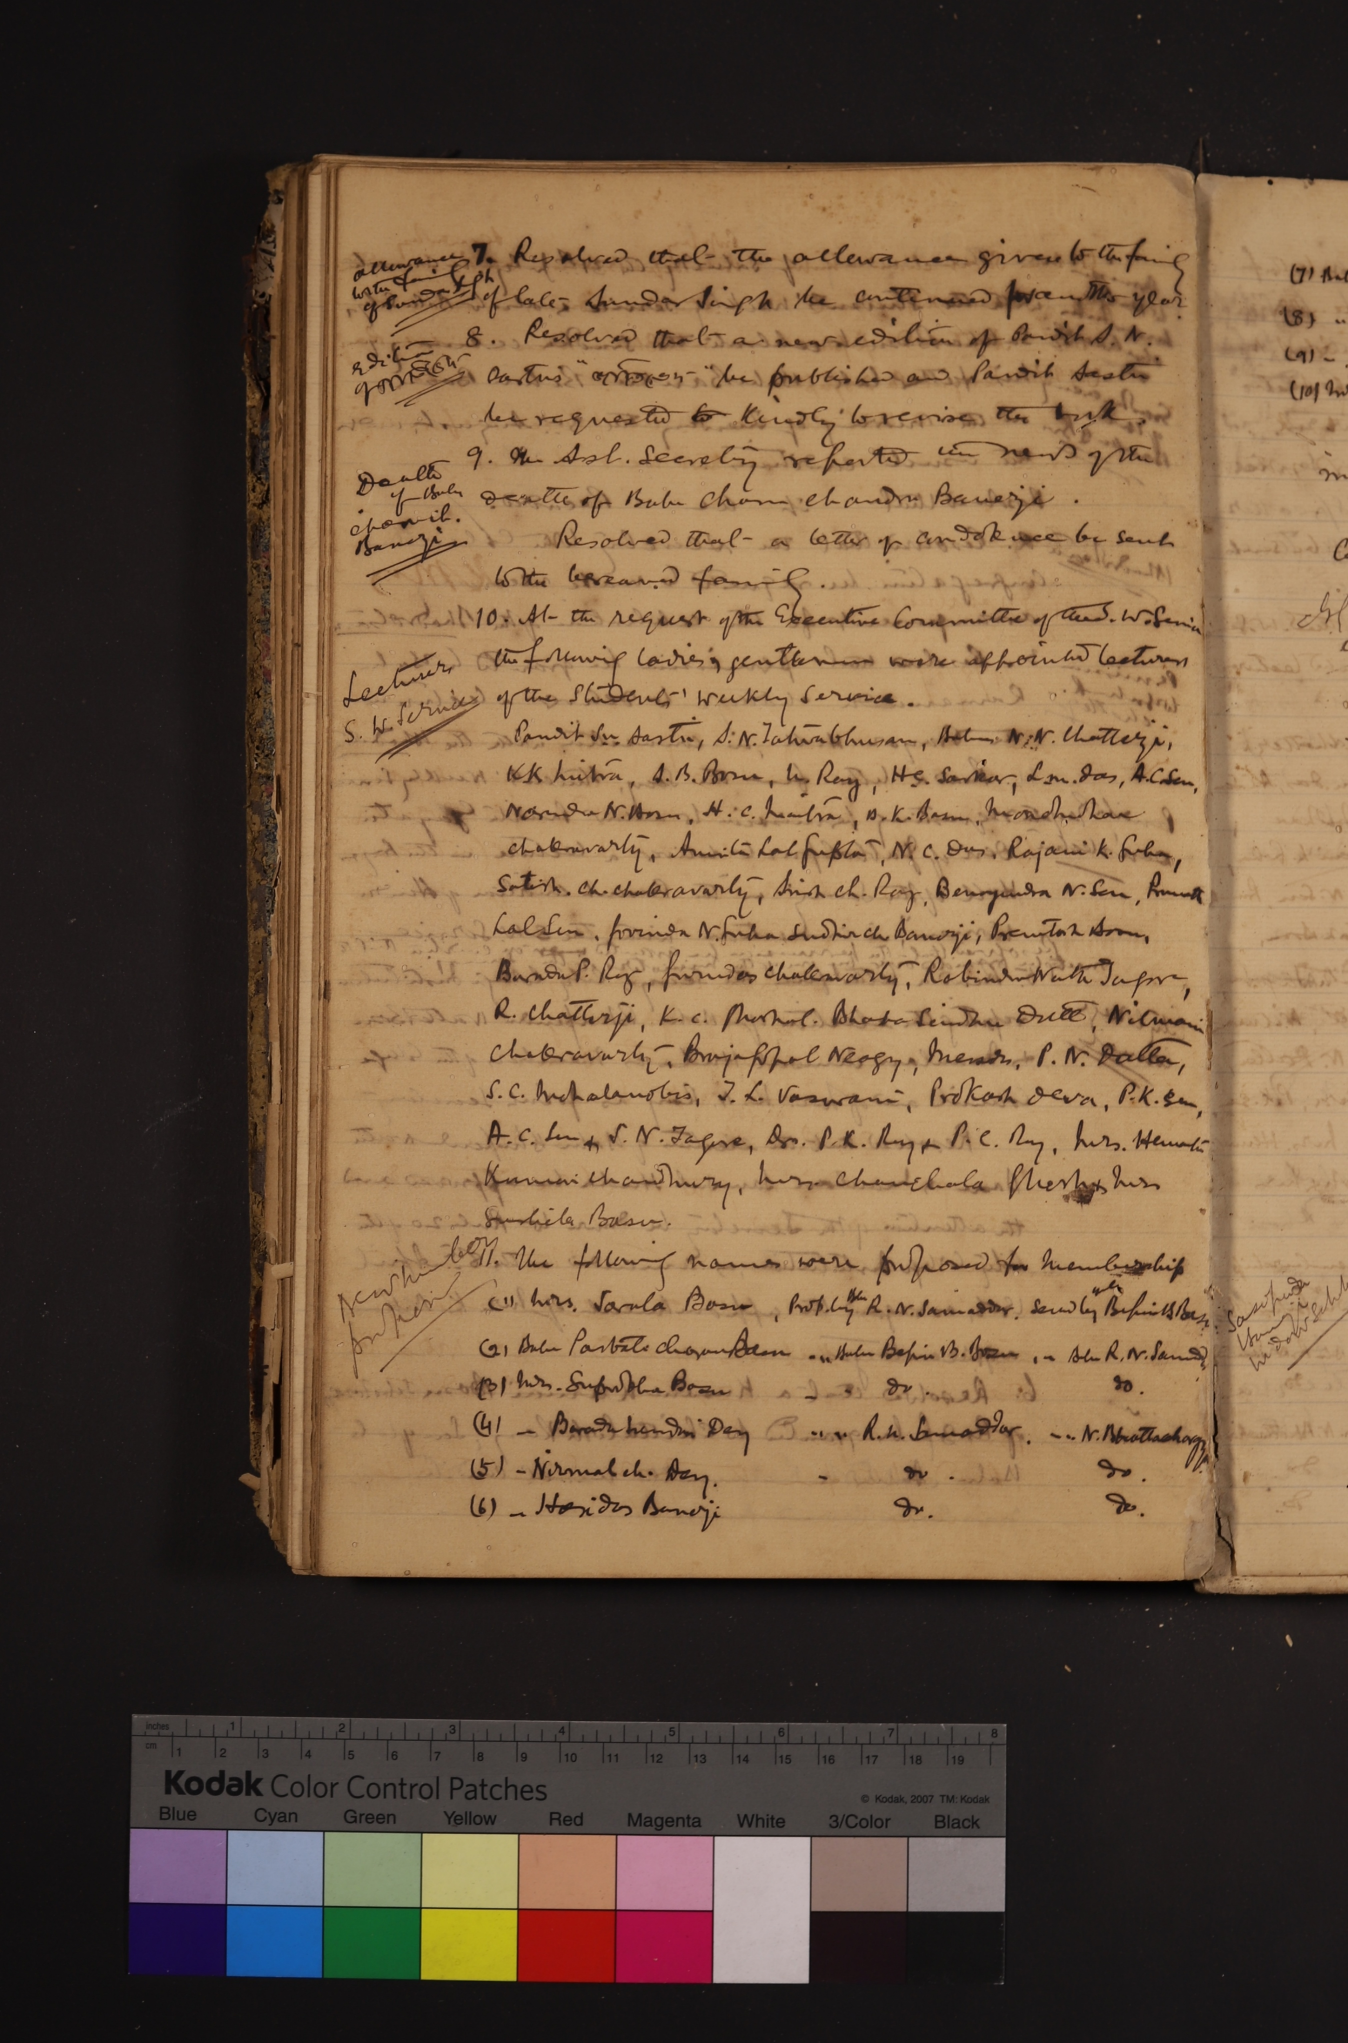 allowance
to the family
of Sundar Singh
7. Resolved that the allowance given to the family
of late Sundar Singh be continued for another year.
edition
of
8. Resolved that a new edition of Pandit S. N.
Sastri's " " be published and Pandit Sastri
be requested to kindly to revise the book.
Death
of Babu
Charu Ch.
Banerji
9. The Asst. Secretary reported the news of the
death of Babu Charu Chandra Banerji.
Resolved that a letter of condolence be sent
to the bereaved family.
Lecturers
S. W. Service
10. At the request of the Executive Committee of the S. W. Service
the following ladies & gentlemen were appointed lecturers
of the Students' Weekly Service.
Pandit Sn Sastri, S. N. Tatwabhusan, Babus N. N. Chatterji,
K K Mitra, S. B. Bosu, M. Ray, H C. Sarkar, L. M. Das, A. C. Sen,
Narendra N. Bosu, H. C. Maitra, D. K. Basu, Manomohan
Chakravarty, Amrita Lal Gupta, N. C. Das, Rajani K. Guha,
Satish Ch. Chakravarty, Sirish Ch. Ray, Benoyendra N. Sen, Promatha
Lal Sen, Govinda N. Guha Sudhir Ch Banerji, Premtosh Bosu,
Barada P. Ray, Gurudas Chakravarty, Rabindra Nath Tagore,
R. Chatterji, K. C. Ghoshal. Bhaba Sindhu Dutt, Nilmani
Chakravarty, Brajagopal Neogy, Messrs. P. N. Dutta,
S. C. Mahalanobis, T. L. Vaswani, Prokash Deva, P. K. Sen,
A. C. Sen & S. N. Tagore, Drs. P. K. Ray & P. C. Ray, Mrs. Hemanta
Kumari Chaudhury, Mrs. Chanchala Ghosh & Mrs
Sushila Basu.
New members
proposed
11. The following names were proposed for membership
(1) Mrs. Sarala Basu, Prop. by Babu R. N. Samaddar. Secd by Babu Bepin B. Bosu.
(2) Babu Parbati Charan Basu " " Babu Bepin B. Bosu, " Babu R. N. Samaddar
(3) Mrs. Suprobha Basu " do. do.
(4) " Barada Day " " R. N. Samaddar. " " N. Bhattacharyya
(5) " Nirmal Ch. Dey. " do. do.
(6) " Haridas Banerji do. do.
(7) Bab
(8) "
(9) "
(10)
inches 1 2 3 4 5 6 7 8
cm 1 2 3 4 5 6 7 8 9 10 11 12 13 14 15 16 17 18 19
Kodak Color Control Patches
© Kodak, 2007 TM: Kodak
Blue Cyan Green Yellow Red Magenta White 3/Color Black